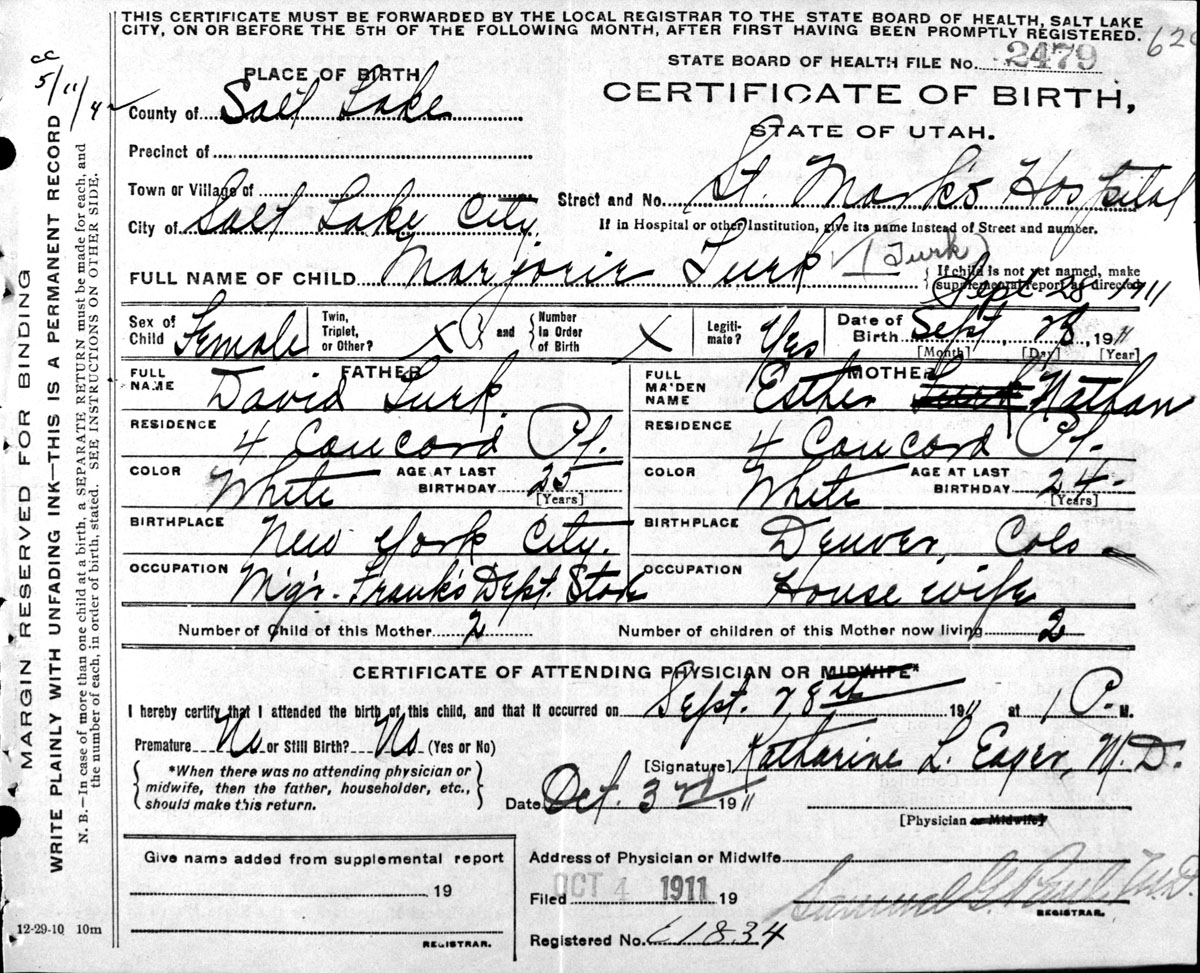 THIS CERTIFICATE MUST BE FORWARDED BY THE LOCAL REGISTRAR TO THE STATE BOARD OF HEALTH, SALT LAKE
CITY, ON OR BEFORE THE 5TH OF THE FOLLOWING MONTH, AFTER FIRST HAVING BEEN PROMPTLY REGISTERED.
STATE BOARD OF HEALTH FILE No. 2479
CERTIFICATE OF BIRTH,
STATE OF UTAH.
MARGIN RESERVED FOR BINDING
WRITE PLAINLY WITH UNFADING INK—THIS IS A PERMANENT RECORD
N. B.—In case of more than one child at a birth, a SEPARATE RETURN must be made for each, and
the number of each, in order of birth, stated. SEE INSTRUCTIONS ON OTHER SIDE.
PLACE OF BIRTH
County of Salt Lake
Precinct of
Town or Village of
City of Salt Lake City
Street and No. St. Mark's Hospital
If in Hospital or other Institution, give its name instead of Street and number.
FULL NAME OF CHILD Marjorie Turk (Turk)
If child is not yet named, make
supplemental report as directed
Sept 28 1911
Sex of Child Female
Twin, Triplet, or Other? X and Number in Order of Birth X
Legitimate? Yes
Date of Birth Sept 28, 1911
[Month] [Day] [Year]
FATHER
FULL NAME David Turk
RESIDENCE 4 Concord Pl.
COLOR White AGE AT LAST BIRTHDAY 25 [Years]
BIRTHPLACE New York City.
OCCUPATION Mgr. Frank's Dept. Store
MOTHER
FULL MAIDEN NAME Esther Turk Nathan
RESIDENCE 4 Concord Pl.
COLOR White AGE AT LAST BIRTHDAY 24 [Years]
BIRTHPLACE Denver, Colo
OCCUPATION House wife
Number of Child of this Mother 2
Number of children of this Mother now living 2
CERTIFICATE OF ATTENDING PHYSICIAN OR MIDWIFE*
I hereby certify that I attended the birth of this child, and that it occurred on Sept. 28th 1911 at 1 P. M.
Premature No or Still Birth? No (Yes or No)
*When there was no attending physician or
midwife, then the father, householder, etc.,
should make this return.
[Signature] Katharine L. Eager, M.D.
Date Oct. 3rd 1911
[Physician or Midwife]
Give name added from supplemental report
19
REGISTRAR.
12-29-10 10m
Address of Physician or Midwife
Filed OCT 4 1911 19
REGISTRAR.
Registered No. 61834